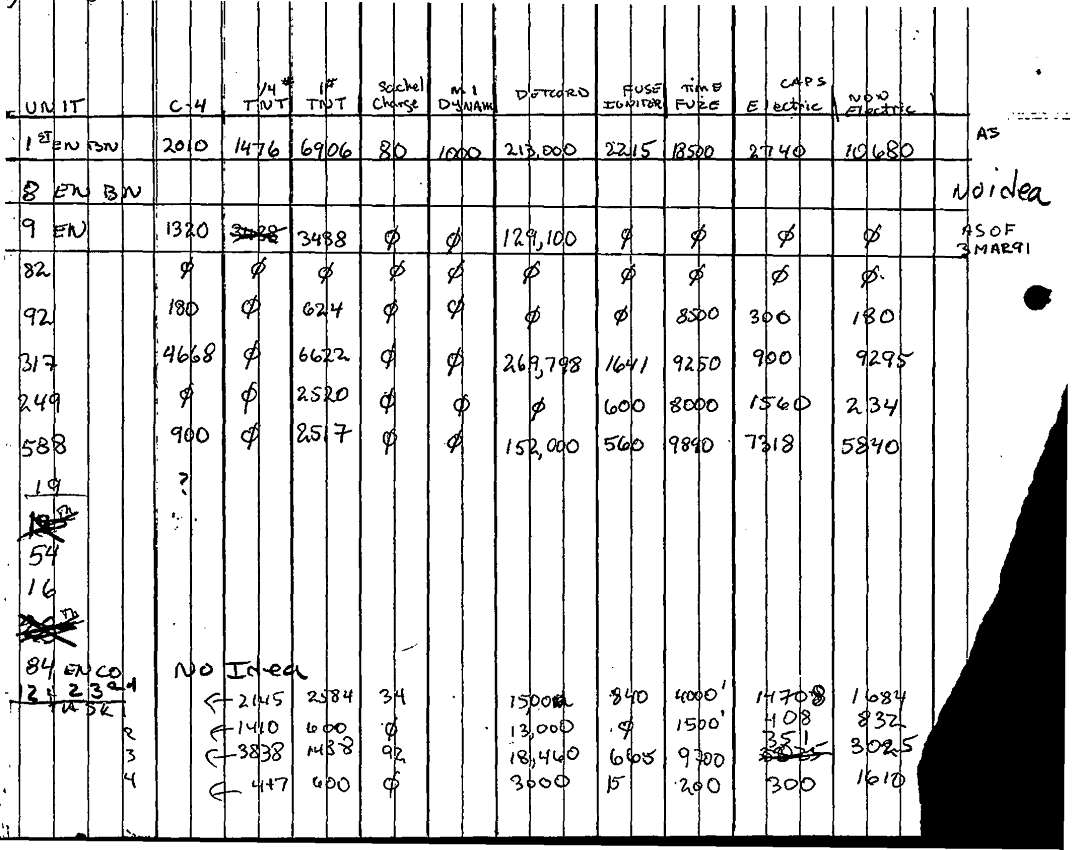 CAPS
1/4# 1# Sachel M1 FUSE TIME NON
UNIT C-4 TNT TNT Charge DYNAM DETCORD IGNITOR FUZE Electric Electric
1ST EN BN 2010 1476 6906 80 1000 213,000 2215 18500 2740 10680 AS
8 EN BN No idea
9 EN 1320 3488 ∅ ∅ 129,100 ∅ ∅ ∅ ∅ AS OF 3 MAR 91
82 ∅ ∅ ∅ ∅ ∅ ∅ ∅ ∅ ∅ ∅
92 180 ∅ 624 ∅ ∅ ∅ ∅ 8500 300 180
317 4668 ∅ 6622 ∅ ∅ 269,798 1641 9250 900 9295
249 ∅ ∅ 2520 ∅ ∅ ∅ 600 8000 1560 234
588 900 ∅ 2517 ∅ ∅ 152,000 560 9890 7318 5840
19 ?
54
16
84 EN CO No Idea
← 2145 2584 34 840 4000' 1684
2 ← 1410 600 ∅ 13,000 ∅ 1500' 408 832
3 ← 3838 92 18,460 665 9700 351 3025
4 ← 600 ∅ 3000 15 200 300 1610